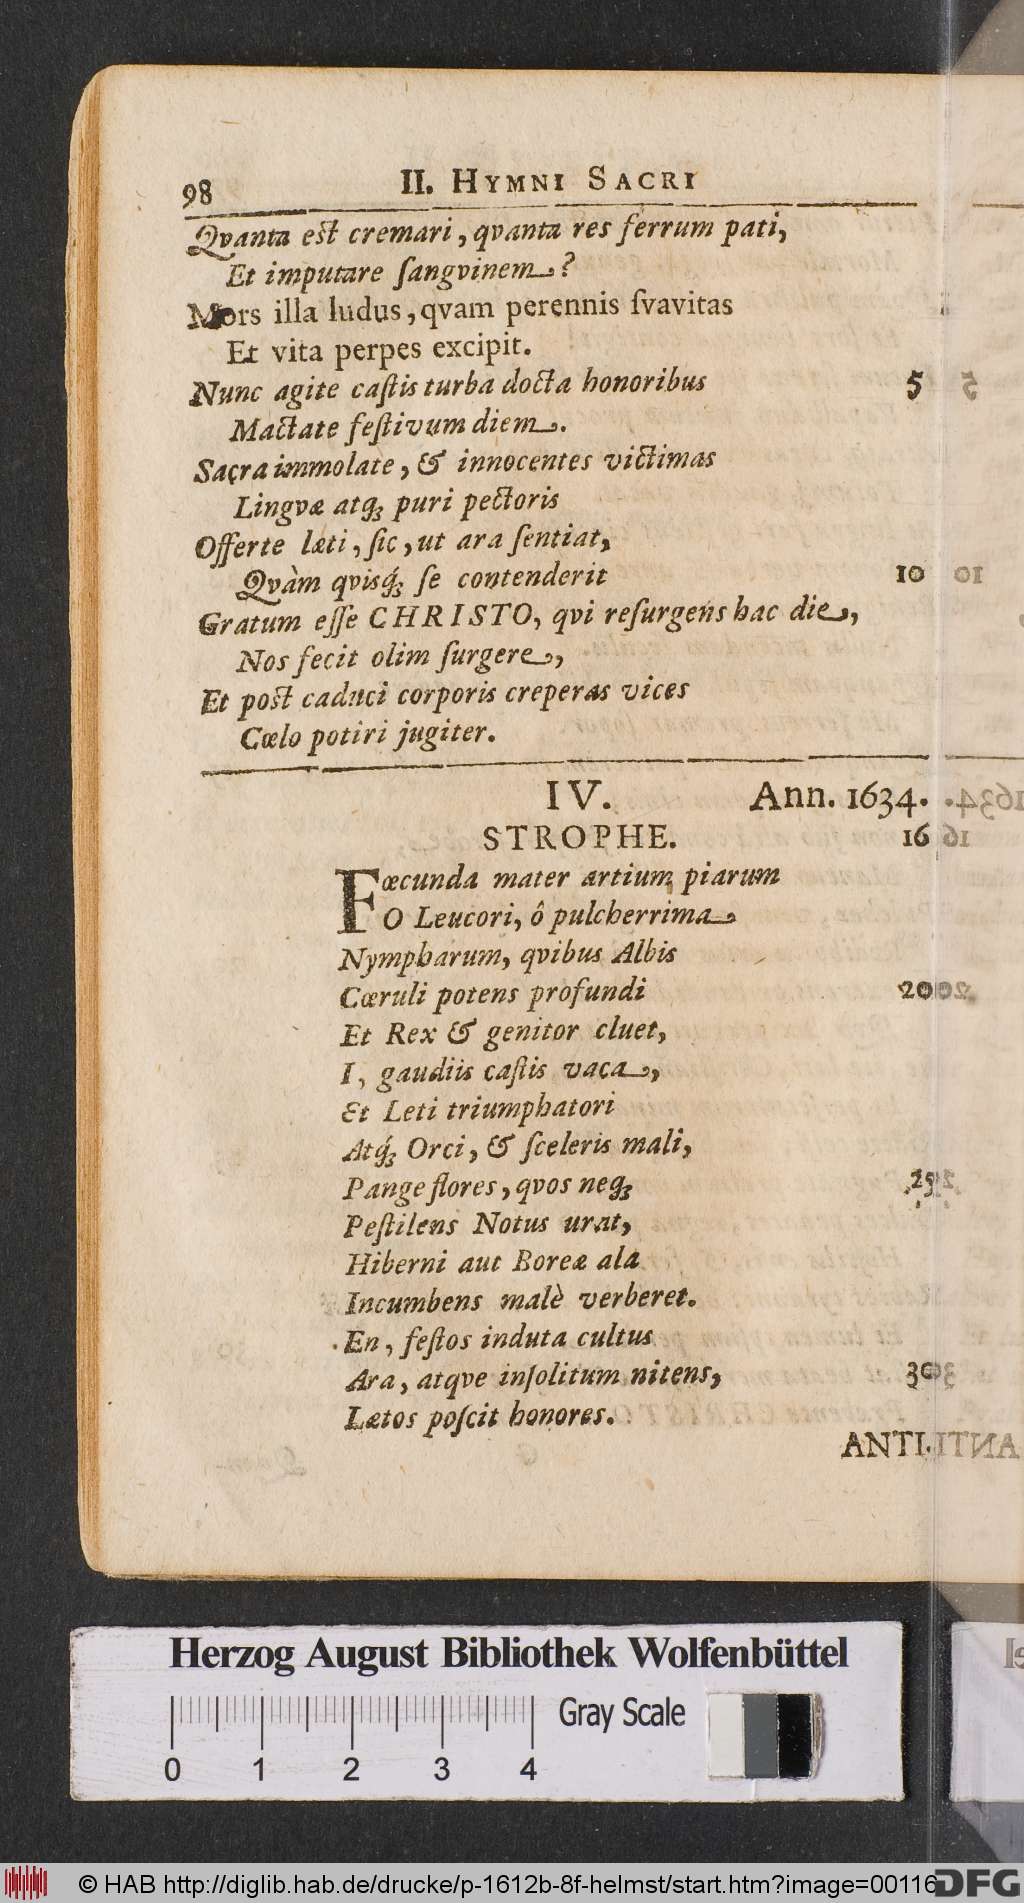 98 II. HYMNI SACRI
Qvanta est cremari, qvanta res ferrum pati,
Et imputare ſangvinem?
Mors illa ludus, qvam perennis ſvavitas
Et vita perpes excipit.
Nunc agite caſtis turba docta honoribus 5
Mactate feſtivum diem.
Sacra immolate, & innocentes victimas
Lingvæ atq́ꝫ puri pectoris
Offerte læti, ſic, ut ara ſentiat,
Qvàm qvisq́ꝫ ſe contenderit 10
Gratum eſſe CHRISTO, qvi reſurgens hac die,
Nos fecit olim ſurgere,
Et post caduci corporis creperas vices
Cœlo potiri jugiter.
IV. Ann. 1634.
STROPHE. 16
Fœcunda mater artium piarum
O Leucori, ô pulcherrima
Nympharum, qvibus Albis
Cœruli potens profundi 20
Et Rex & genitor cluet,
I, gaudiis caſtis vaca,
Et Leti triumphatori
Atq́ꝫ Orci, & ſceleris mali,
Pange flores, qvos neqꝫ 25
Peſtilens Notus urat,
Hiberni aut Boreæ ala
Incumbens malè verberet.
En, feſtos induta cultus
Ara, atqve inſolitum nitens, 30
Lætos poſcit honores.
ANTI-
Herzog August Bibliothek Wolfenbüttel
Gray Scale
0 1 2 3 4
© HAB http://diglib.hab.de/drucke/p-1612b-8f-helmst/start.htm?image=00116
DFG